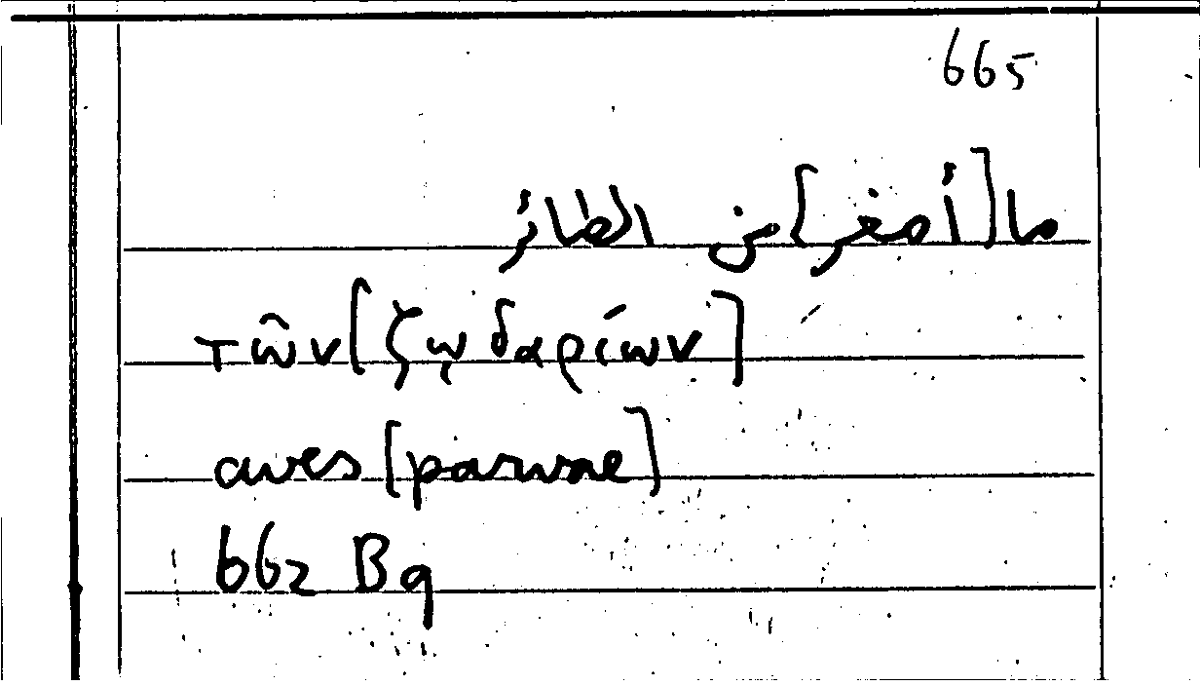 665
ما [أصغر] من الطائر
τῶν [ζῳδαρίων]
aves [parvae]
662 B9